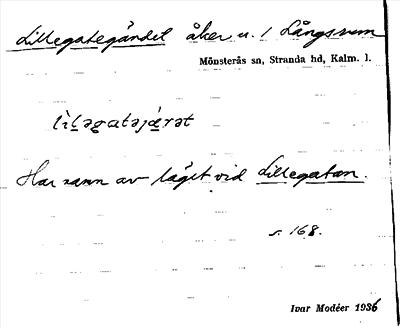 Lillegategärdet åker u. 1 Långsrum
Mönsterås sn, Stranda hd, Kalm. l.
Har namn av läget vid Lillegatan.
s. 168.
Ivar Modéer 1936